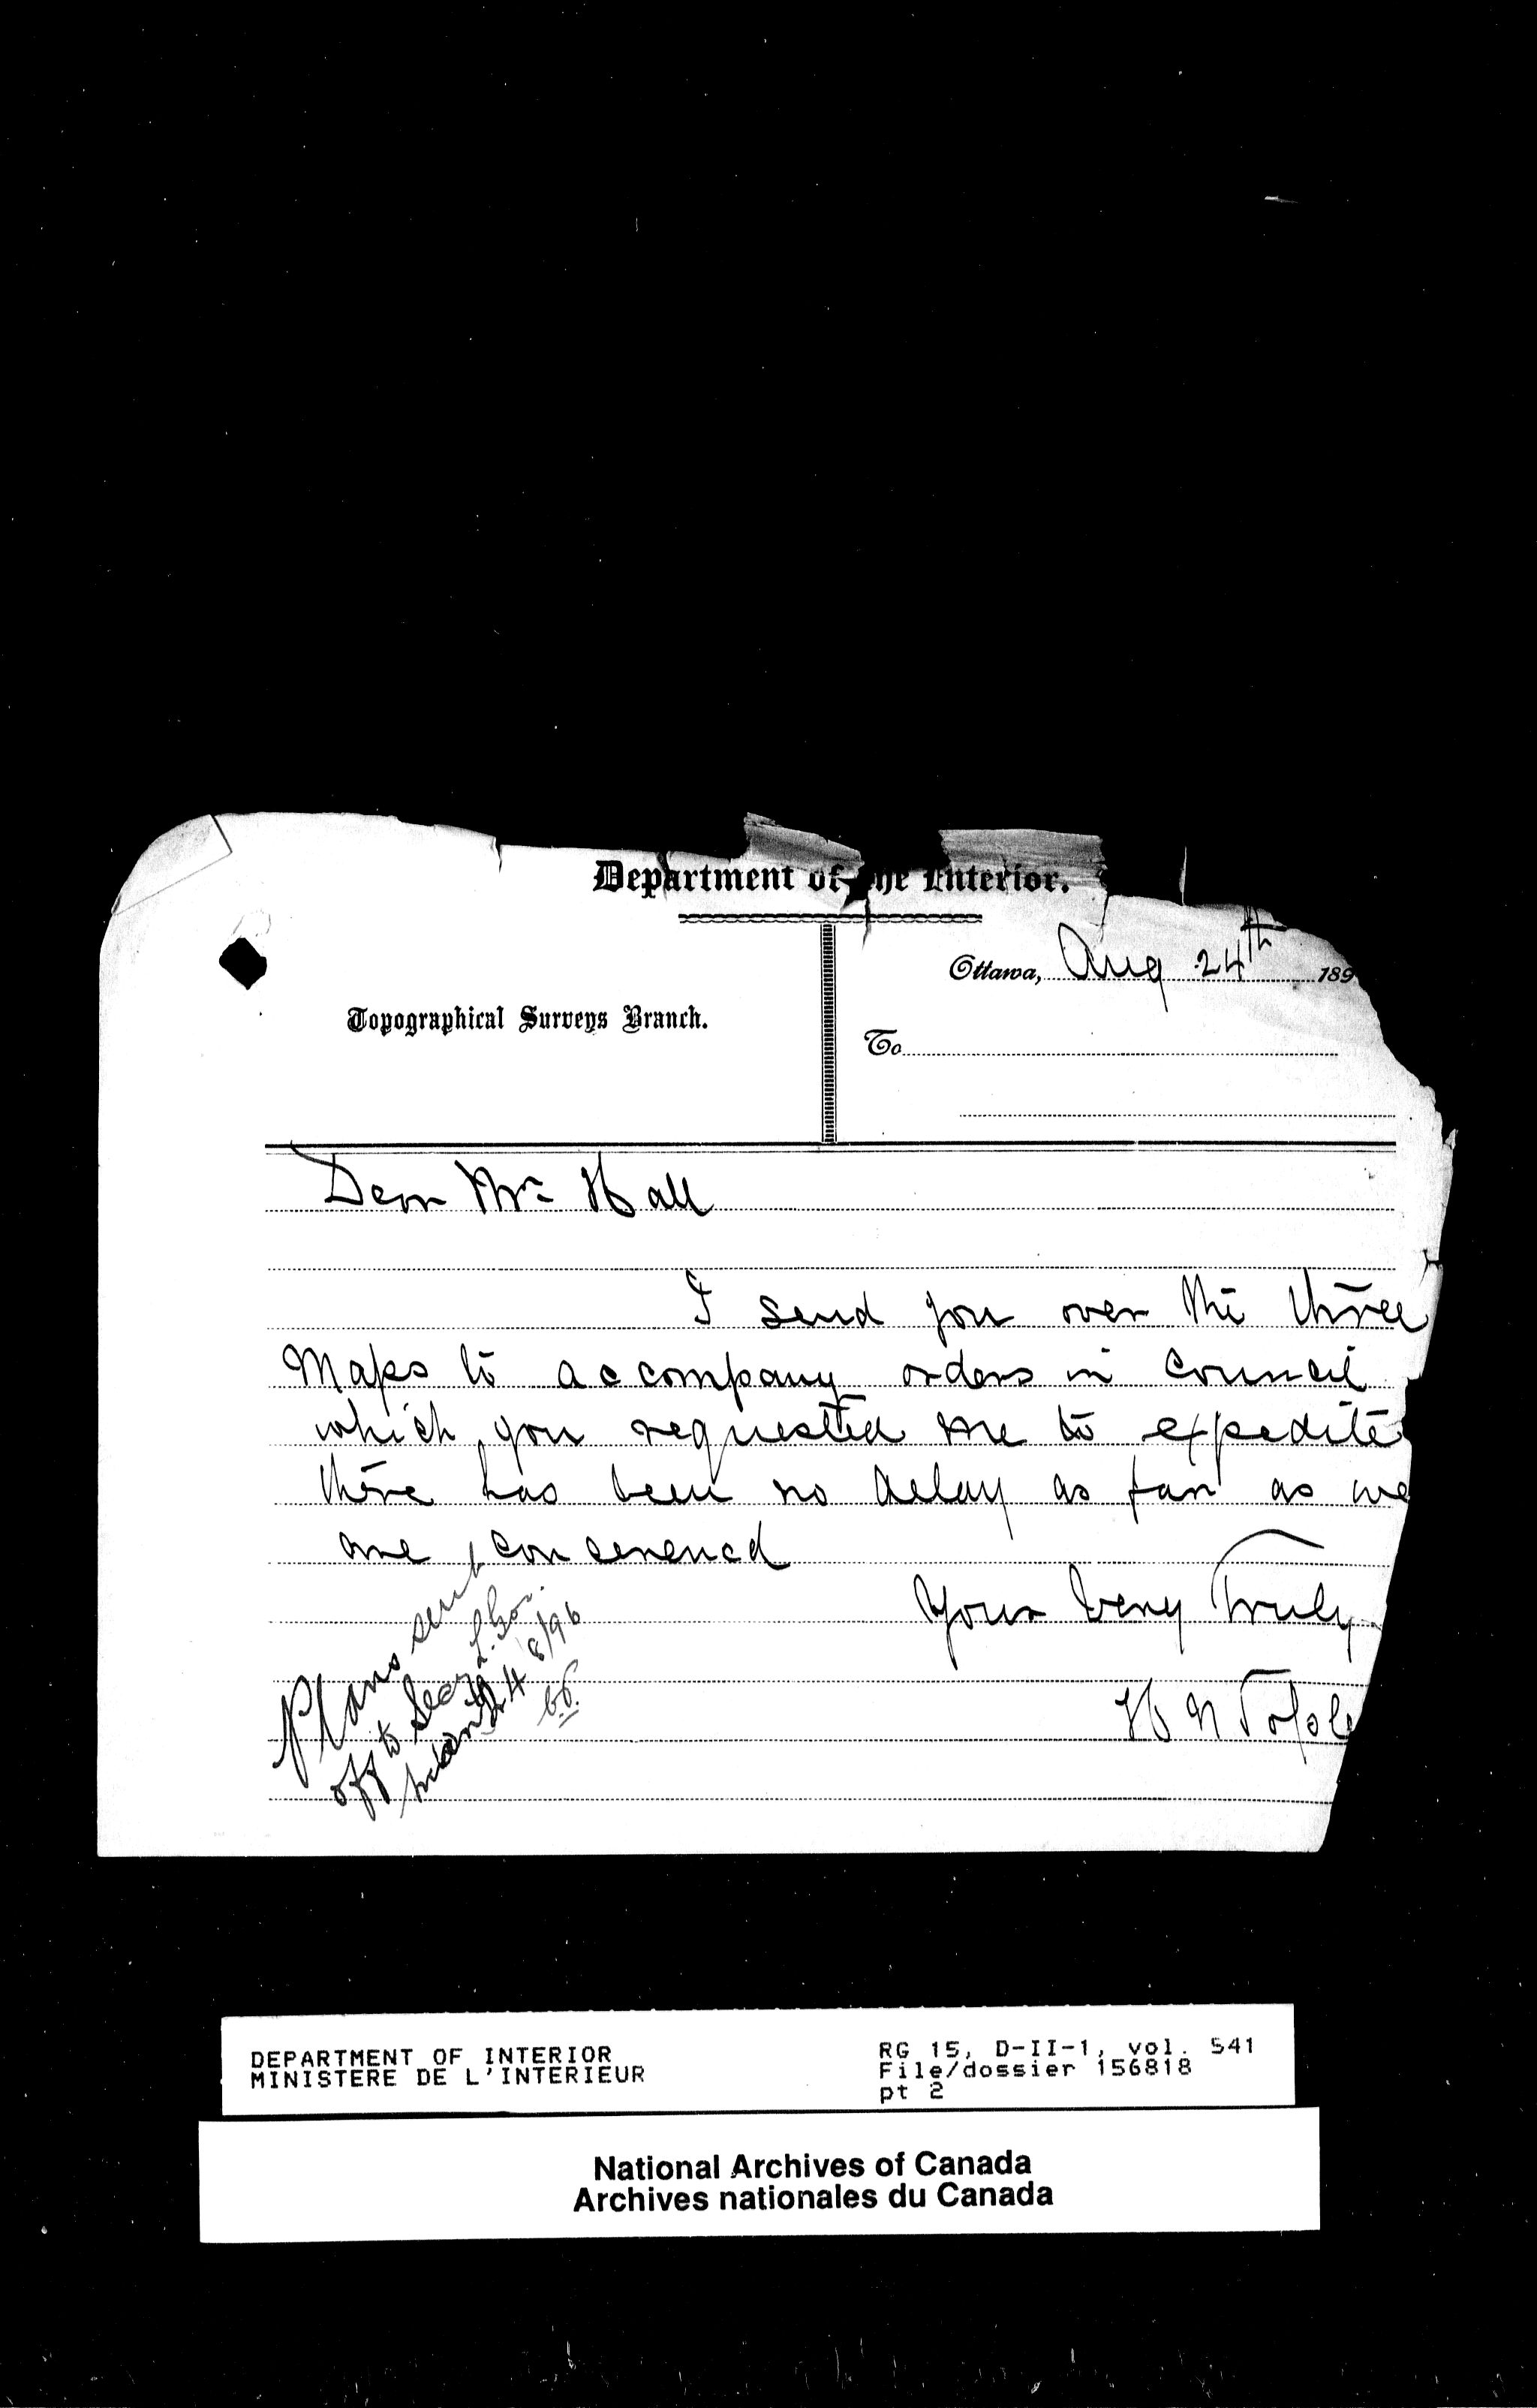 Department of the Interior.
Ottawa, Aug 24th 189
Topographical Surveys Branch.
To
Dear Mr. Hall
I send you over the three
Maps to accompany orders in Council
which you requested me to expedite
there has been no delay as far as we
are concerened
Yours Very Truly
Plans sent
off to
24/8/96
DEPARTMENT OF INTERIOR
MINISTERE DE L'INTERIEUR
RG 15, D-II-1, vol. 541
File/dossier 156818
pt 2
National Archives of Canada
Archives nationales du Canada